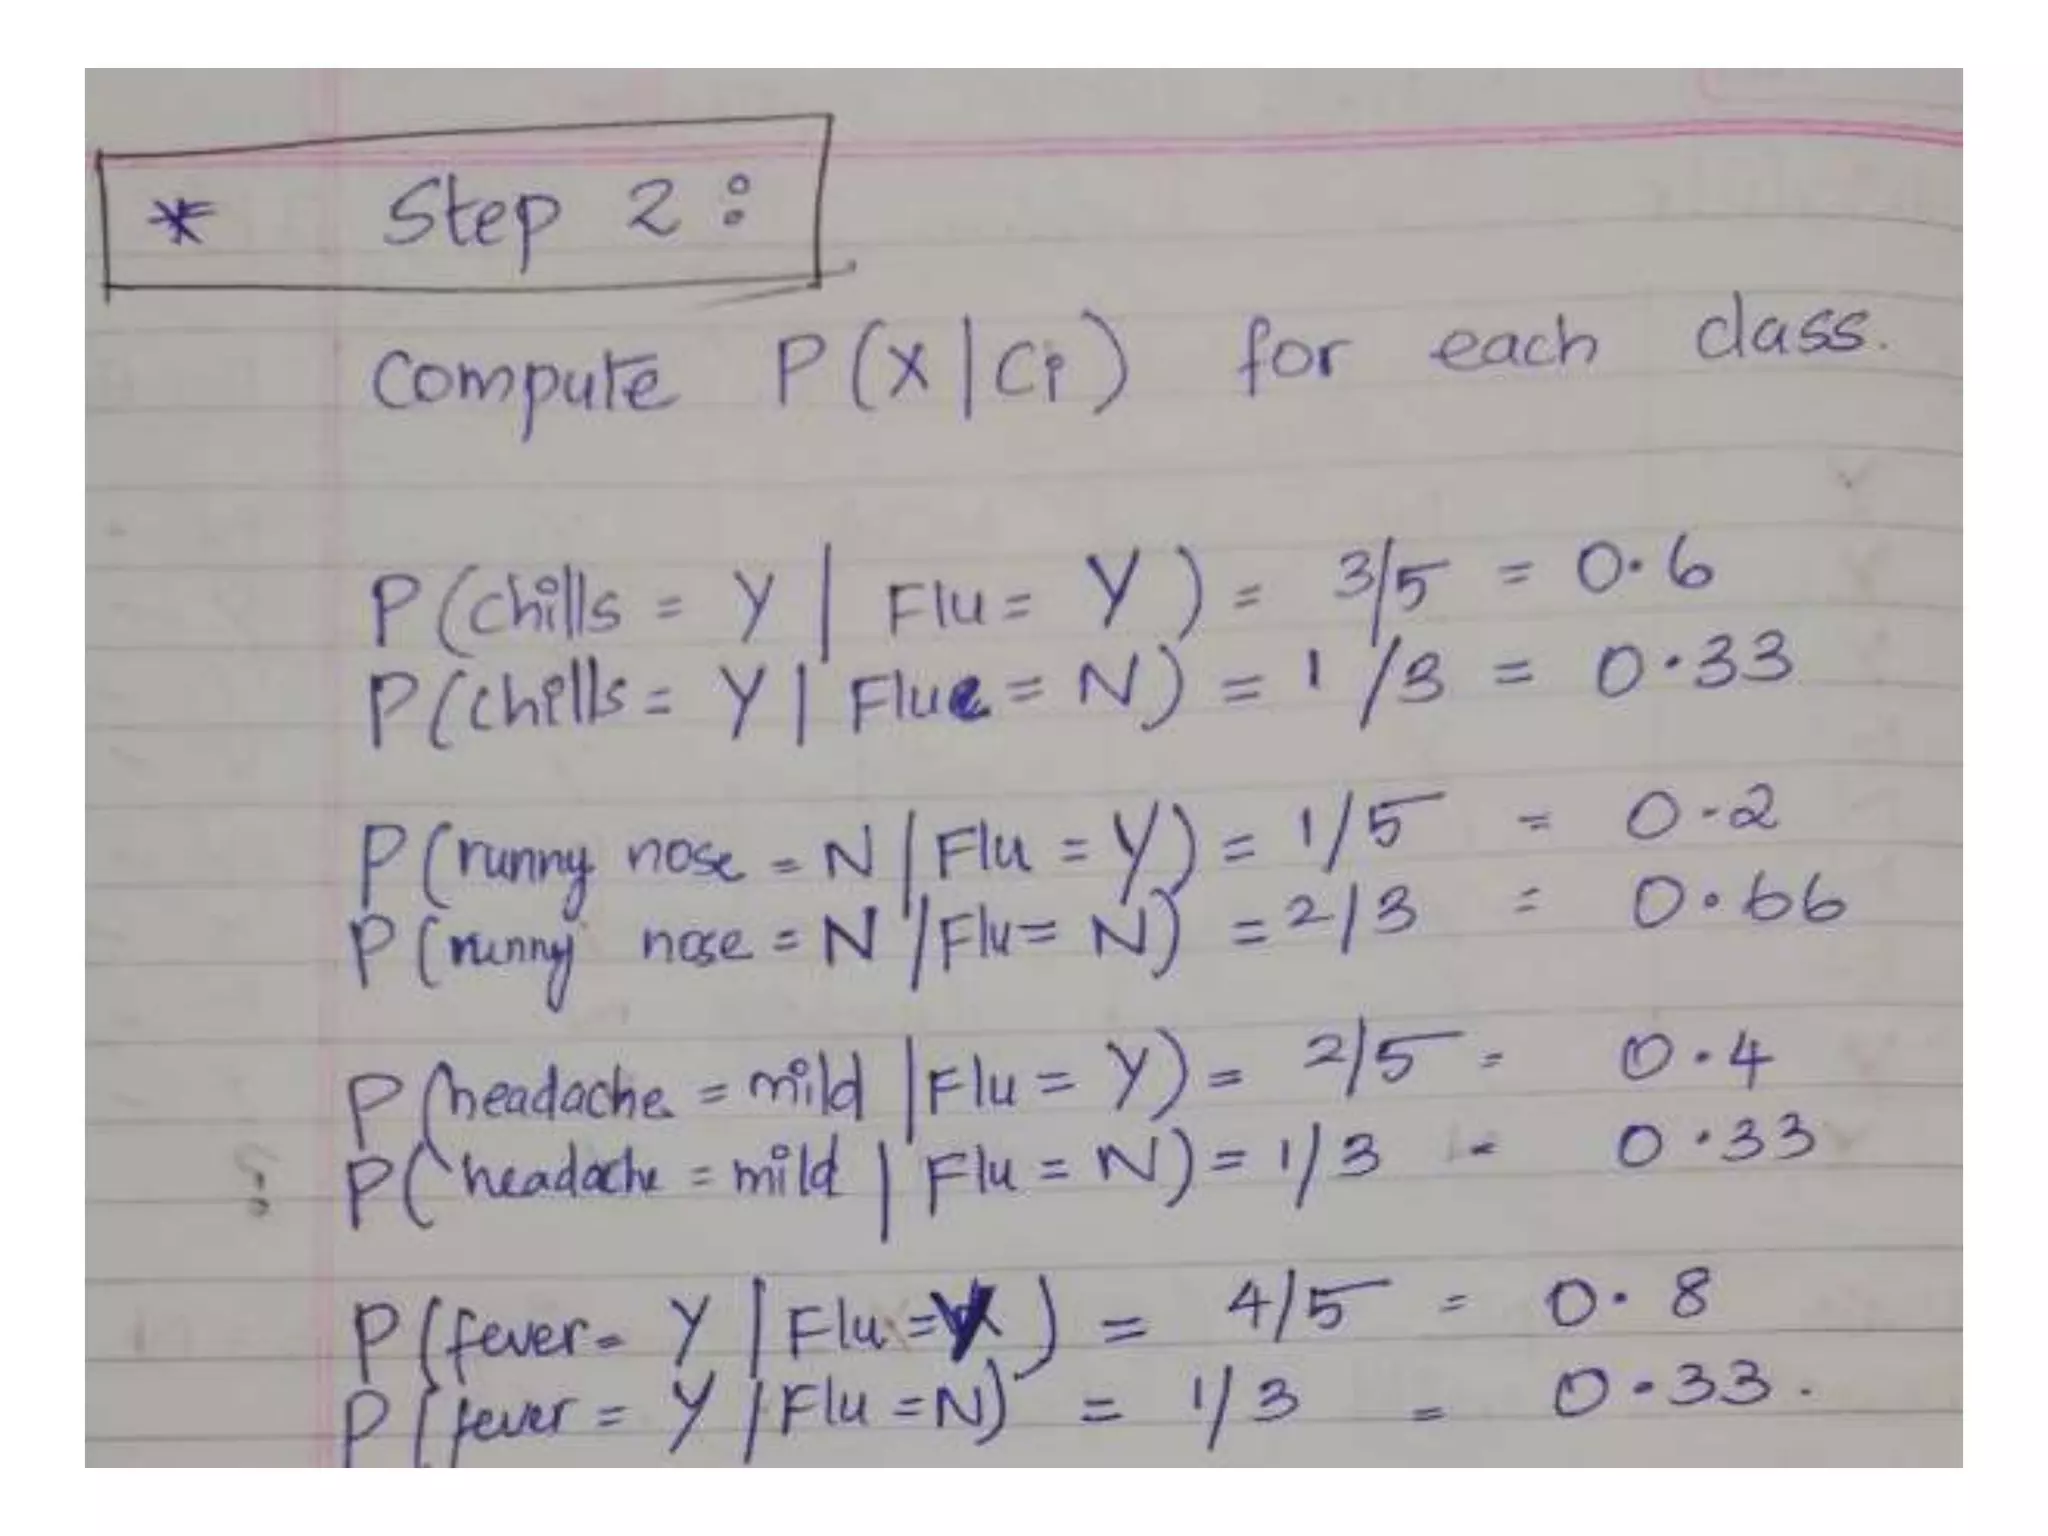 * Step 2:
Compute P(X|Ci) for each class.
P(chills = Y | Flu = Y) = 3/5 = 0.6
P(chills = Y | Flue = N) = 1/3 = 0.33
P(runny nose = N | Flu = Y) = 1/5 = 0.2
P(runny nose = N | Flu = N) = 2/3 = 0.66
P(headache = mild | Flu = Y) = 2/5 = 0.4
P(headache = mild | Flu = N) = 1/3 = 0.33
P(fever = Y | Flu = Y) = 4/5 = 0.8
P(fever = Y | Flu = N) = 1/3 = 0.33.